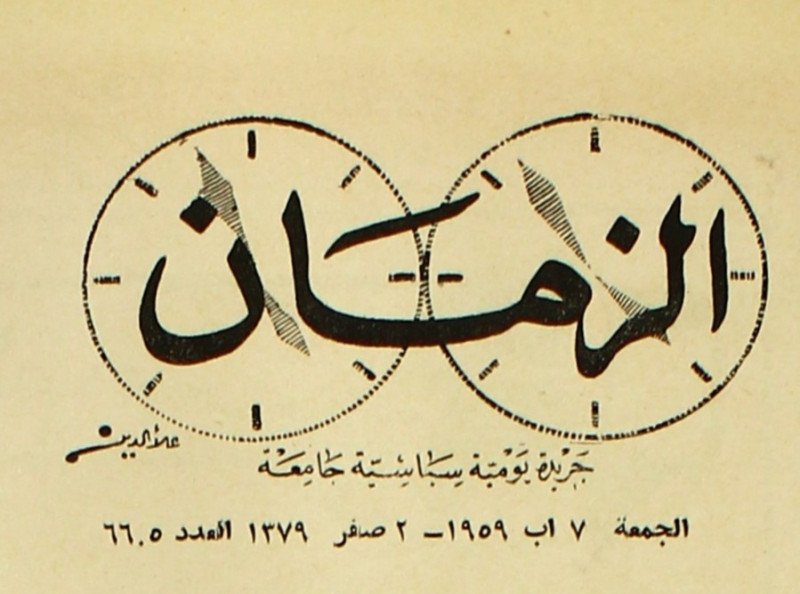 الزمان
علاءالدين
جَريدة يَوْميّة سِيَاسِيّة جَامِعَة
الجمعة ٧ اب ١٩٥٩ – ٢ صفر ١٣٧٩ العدد ٦٦٠٥